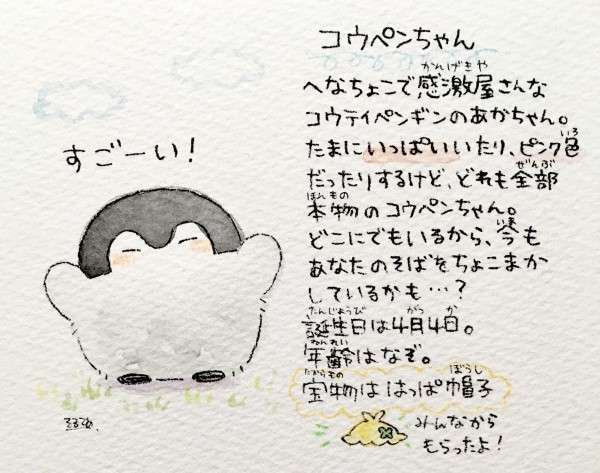 コウペンちゃん
へなちょこで感激屋さんな
コウテイペンギンのあかちゃん。
たまにいっぱいいたり、ピンク色
だったりするけど、どれも全部
本物のコウペンちゃん。
どこにでもいるから、今も
あなたのそばをちょこまか
しているかも…?
誕生日は4月4日。
年齢はなぞ。
宝物ははっぱ帽子
みんなから
もらったよ!
すごーい!
るるてあ